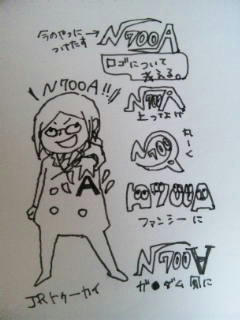 今のやつに
つけたす→
N700A
ロゴについて
考える。
N700A!!
N700A
上ってよげ
丸ーく
N700
A
N700A
ファンシーに
N700A
ガ●ダム風に
JRトゥーカイ